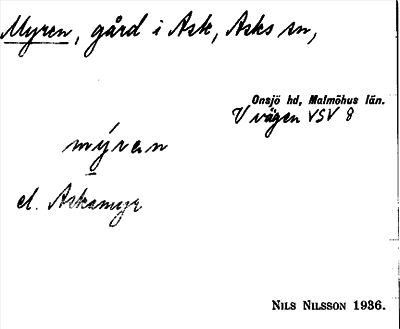 Myren, gård i Ask, Asks sn,
Onsjö hd, Malmöhus län.
V vägen VSV 8
mýren
el. Askamyr
NILS NILSSON 1936.